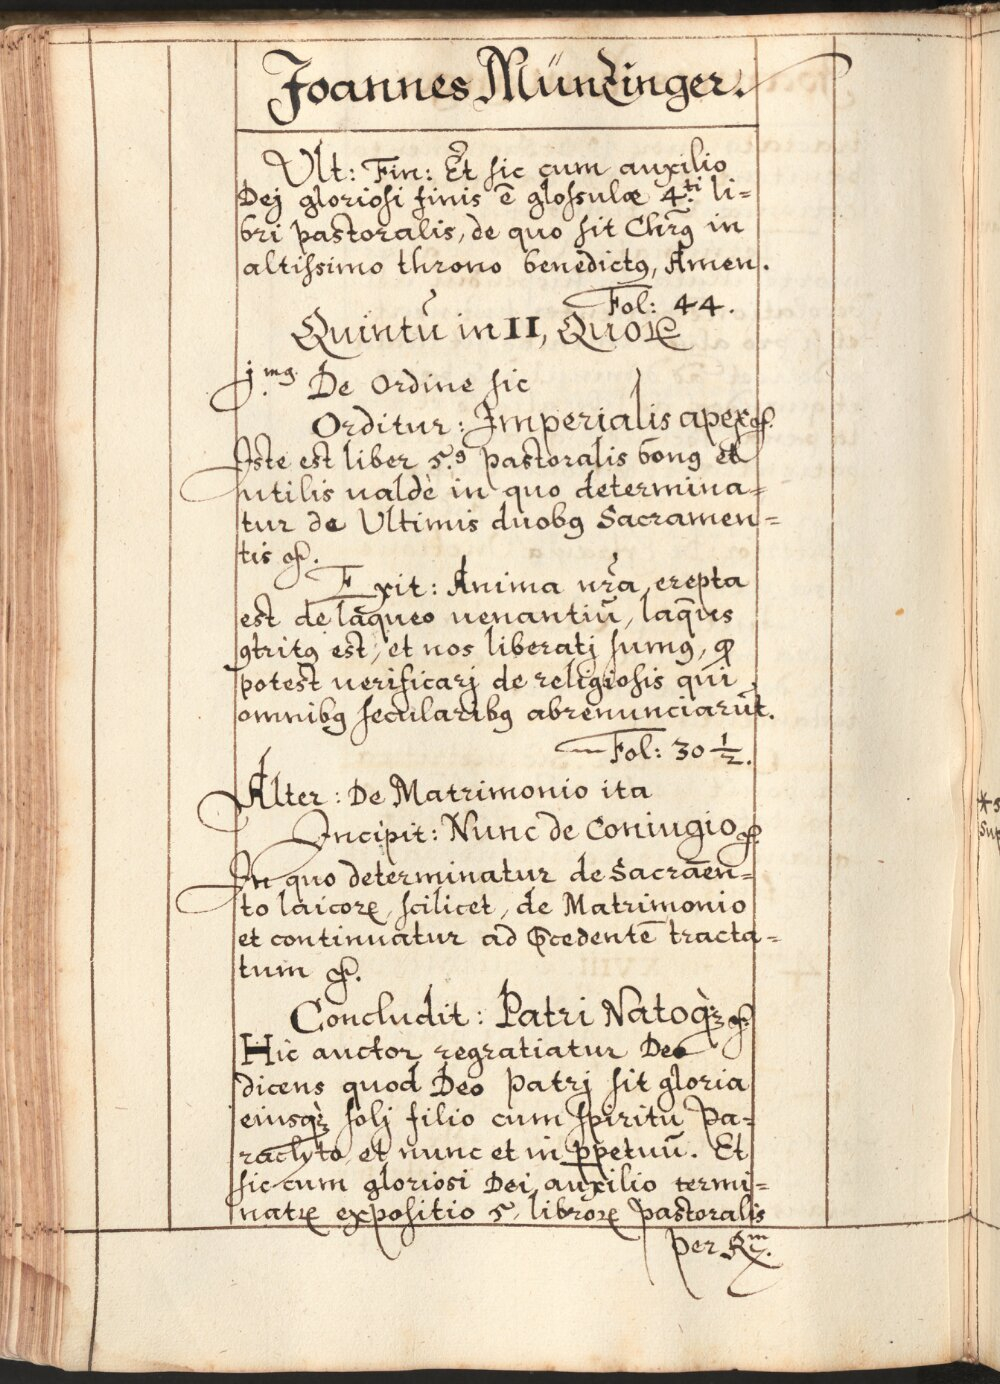 Joannes Münzinger.
Ult: Fin: Et sic cum auxilio
Dej gloriosi finis ē glossulæ 4.ti li=
bri pastoralis, de quo sit Chrꝰ in
altissimo throno benedictꝰ, Amen.
Fol: 44.
Quintū in II, Quoꝝ
j.mꝰ De Ordine sic
Orditur: Imperialis apex
Iste est liber 5.ꝰ pastoralis bonꝰ et
utilis ualdè in quo determina=
tur de Ultimis duobꝰ Sacramen=
tis
Exit: Anima nr̃a, erepta
est de laqueo uenantiū, laq̄us
ꝯtritꝰ est, et nos liberatj sumꝰ,
potest uerificarj de religiosis qui
omnibꝰ secularibꝰ abrenunciarūt.
Fol: 30 1/2.
Alter: De Matrimonio ita
Incipit: Nunc de Coniugio
In quo determinatur de Sacramēn=
to laicoꝝ, scilicet, de Matrimonio
et continuatur ad p̄cedentē tracta=
tum
Concludit: Patri Natoqꝫ
Hic auctor regratiatur Deo
dicens quod Deo patrj sit gloria
eiusqꝫ solj filio cum spiritu Pa=
raclyto et nunc et in ꝑpetuū. Et
sic cum gloriosi Dei auxilio termi=
natꝝ expositio 5. libroꝝ pastoralis
per
*s
sup